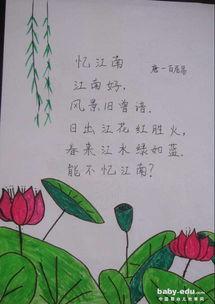 忆江南
唐一白居易
江南好,
风景旧曾谙.
日出江花红胜火,
春来江水绿如蓝.
能不忆江南?
baby-edu.com